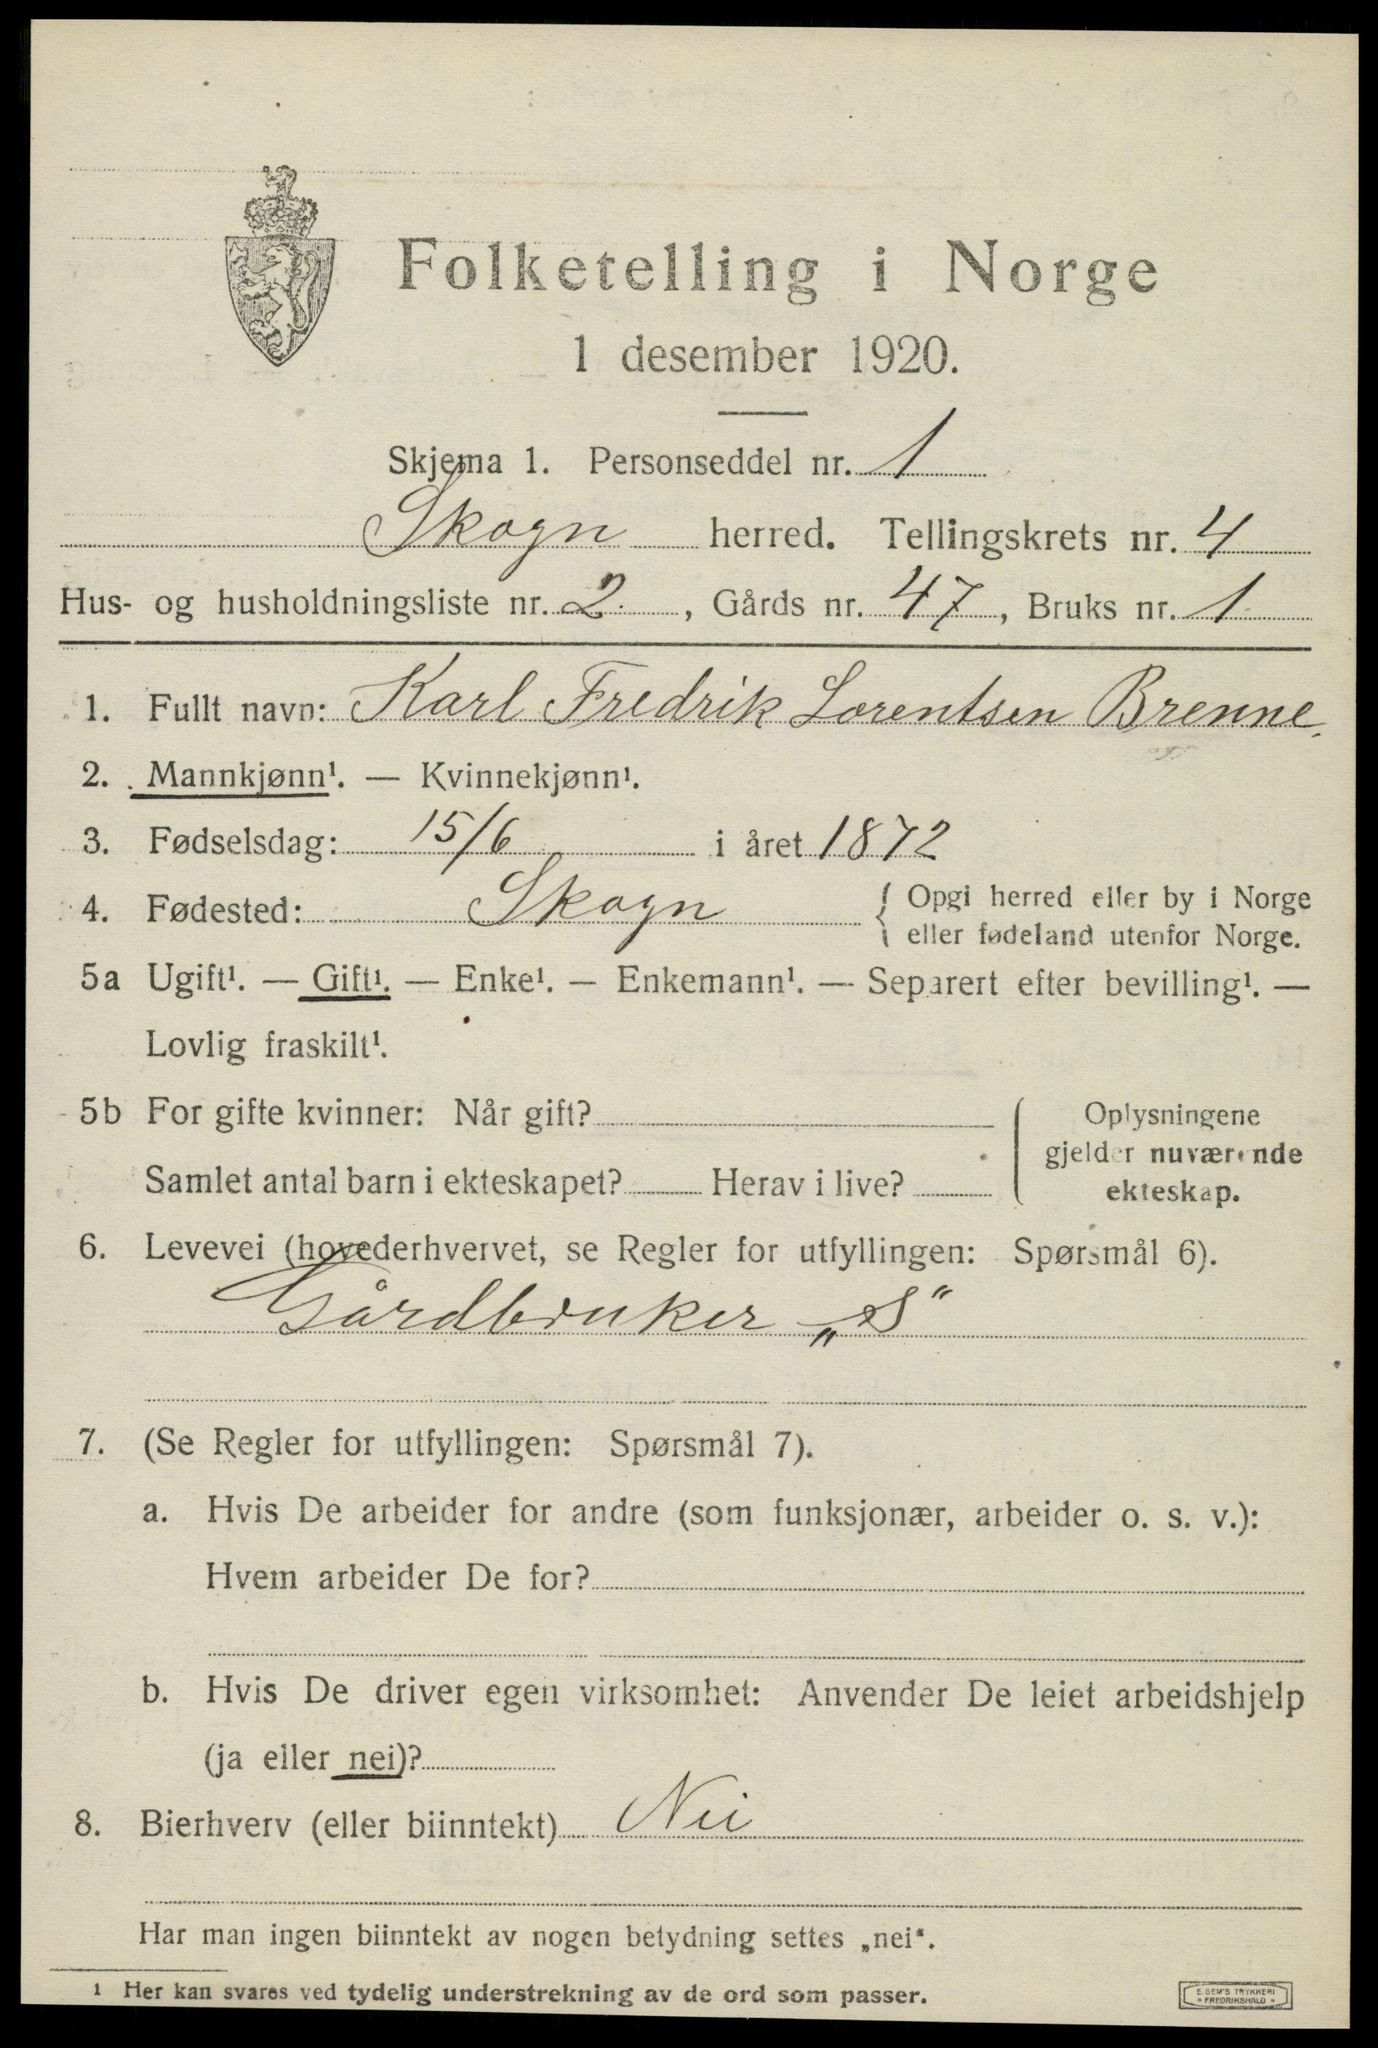 Folketelling i Norge
1 desember 1920.
Skjema 1. Personseddel nr. 1
Skogn herred. Tellingskrets nr. 4
Hus- og husholdningsliste nr. 2., Gårds nr. 47, Bruks nr. 1
1. Fullt navn: Karl Fredrik Lorentsen Brenne.
2. Mannkjønn¹. — Kvinnekjønn¹.
3. Fødselsdag: 15/6 i året 1872
4. Fødested: Skogn { Opgi herred eller by i Norge
eller fødeland utenfor Norge.
5a Ugift¹. — Gift¹. — Enke¹. — Enkemann¹. — Separert efter bevilling¹. —
Lovlig fraskilt¹.
5b For gifte kvinner: Når gift?
Samlet antal barn i ekteskapet? Herav i live?
Oplysningene
gjelder nuværende
ekteskap.
6. Levevei (hovederhvervet, se Regler for utfyllingen: Spørsmål 6).
Gårdbruker „S“
7. (Se Regler for utfyllingen: Spørsmål 7).
a. Hvis De arbeider for andre (som funksjonær, arbeider o. s. v.):
Hvem arbeider De for?
b. Hvis De driver egen virksomhet: Anvender De leiet arbeidshjelp
(ja eller nei)?
8. Bierhverv (eller biinntekt) Nei
Har man ingen biinntekt av nogen betydning settes „nei“.
¹ Her kan svares ved tydelig understrekning av de ord som passer.
E. SEM'S TRYKKERI
• FREDRIKSHALD •